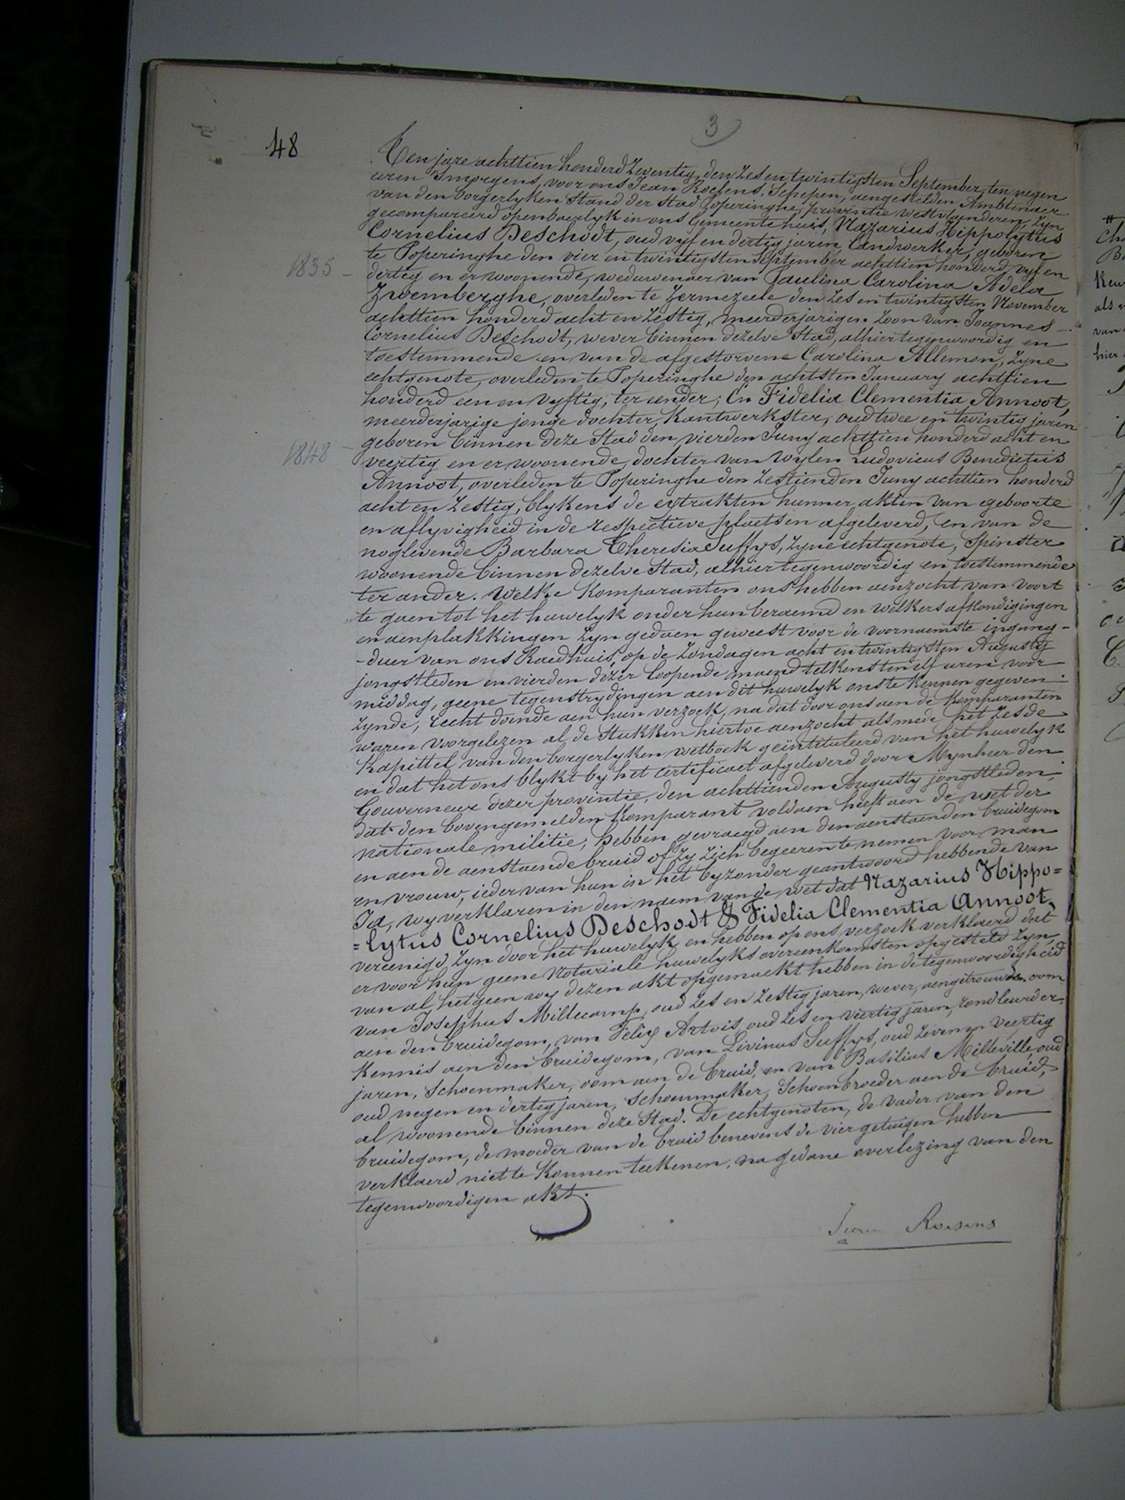 3
48
Ten jare achttien honderd zeventig, den zes en twintigsten September, ten negen
uren 's morgens, voor ons Jean Roesens, Schepen, aengestelden Ambtenaer
van den borgerlyken Stand der stad Poperinghe, provintie westvlanderen, zyn
gecompareerd openbaerlyk in ons Gemeentehuis, Nazarius Hippolytus
Cornelius Deschodt, oud vyf en dertig jaren, landwerker, geboren
te Poperinghe den vier en twintigsten September achttien honderd vyf en
1835
dertig en er woonende, weduwenaer van Paulina Carolina Adela
Zwemberghe, overleden te Zermezeele den zes en twintigsten November
achttien honderd acht en zestig, meerderjarigen zoon van Joannes
Cornelius Deschodt, wever binnen dezelve Stad, alhier tegenwoordig en
toestemmende en van de afgestorvene Carolina Allemon, zyne
echtgenote, overleden te Poperinghe den achtsten January achttien
honderd een en vyftig, ter eender; En Fidelia Clementia Annoot,
meerderjarige jonge dochter, kantwerkster, oud twee en twintig jaren
geboren binnen deze Stad den vierden Juny achttien honderd acht en
1848
veertig en er woonende, dochter van wylen Ludovicus Benedictus
Annoot, overleden te Poperinghe den zestienden Juny achttien honderd
acht en zestig, blykens de extrakten hunner akten van geboorte
en aflyvigheid in de respective plaetsen afgeleverd, en van de
noglevende Barbara Theresia Suffys, zyne echtgenote, Spinster
woonende binnen dezelve Stad, alhier tegenwoordig en toestemmende
ter ander. Welke komparanten ons hebben aenzocht van voort
te gaen tot het huwelyk onder hun beraemd en welkers afkondigingen
en aenplakkingen zyn gedaen geweest voor de voornaemste ingang-
-deur van ons Raedhuis, op de zondagen acht en twintigsten Augusty
jongstleden en vierden dezer loopende maend telkens ten elf uren voor
middag, geene tegenstrydingen aen dit huwelyk ons te kennen gegeven
zynde, recht doende aen hun verzoek, na dat door ons aen de komparanten
waren voorgelezen al de stukken hiertoe aenzocht alsmede het zesde
kapittel van den borgerlyken wetboek geïntituleerd van het huwelyk
en dat het ons blykt by het certificaet afgeleverd door Mynheer den
Gouverneur dezer provintie, den achttienden Augusty jongstleden
dat den bovengemelden komparant voldaen heeft aen de wet der
nationale militie, hebben gevraegd aen den aenstaenden bruidegom
en aen de aenstaende bruid of zy zich begeeren te nemen voor man
en vrouw, ieder van hun in het byzonder geantwoord hebbende van
Ja, wy verklaren in den naem van de wet dat Nazarius Hippo=
=lytus Cornelius Deschodt & Fidelia Clementia Annoot,
vereenigd zyn door het huwelyk en hebben op ons verzoek verklaerd dat
er voor hun geene Notariale huwelyks overeenkomsten opgesteld zyn
van al het geen wy dezen akt opgemaekt hebben in de tegenwoordigheid
van Josephus Millecamp, oud zes en zestig jaren, wever, aengetrouwden oom
aen den bruidegom, van Felix Artois, oud zes en veertig jaren, zandleurder,
kennis aen den bruidegom, van Livinus Suffys, oud zeven en veertig
jaren, Schoenmaker, oom aen de bruid, en van Basilius Milleville, oud
oud negen en dertig jaren, schoenmaker, Schoonbroeder aen de bruid,
al woonende binnen deze Stad. De echtgenoten, de vader van den
bruidegom, de moeder van de bruid benevens de vier getuigen hebben
verklaerd niet te konnen teekenen, na gedane overlezing van den
tegenwoordigen akt.
Jean Roesens